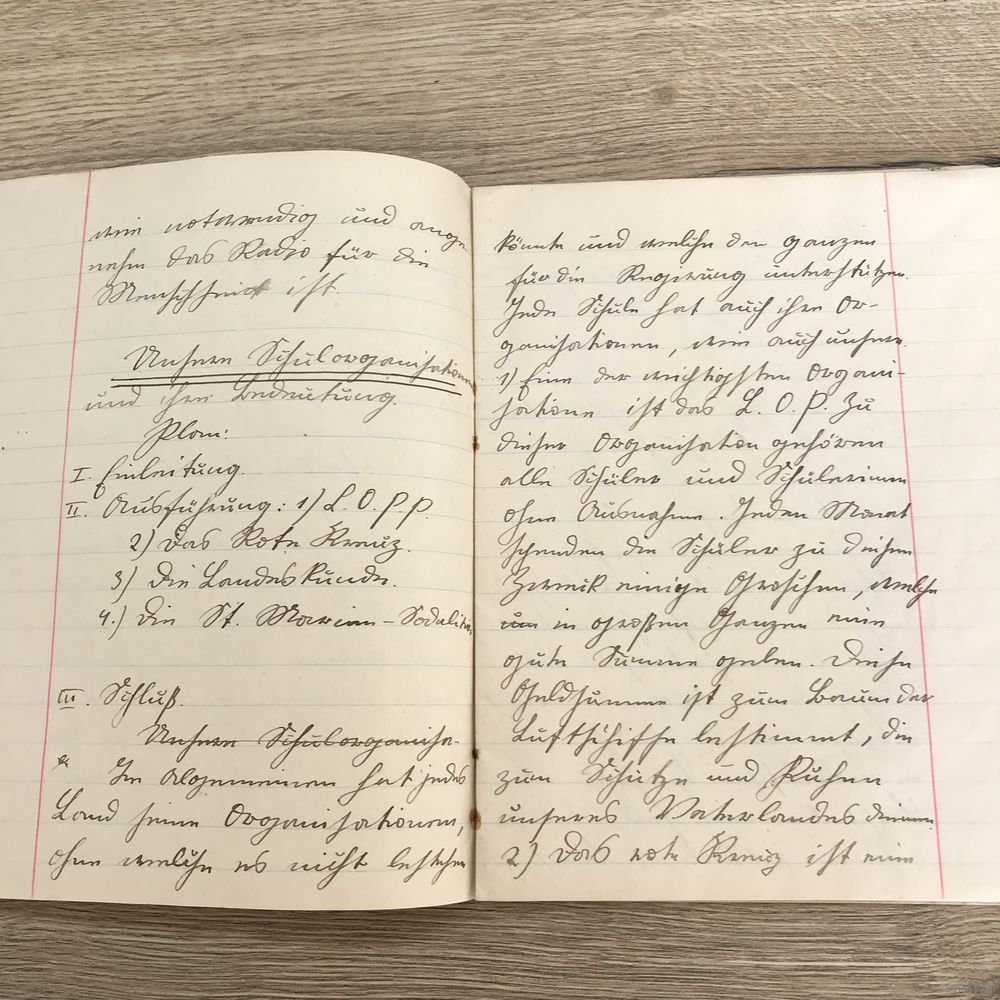 wie notwendig und ange
nehm das Radjo für die
Menschheit ist.
Unsere Schulorganisationen
und ihre Bedeutung.
Plan:
I. Einleitung.
II. Ausführung: 1) L.O.P.P.
2) Das Rote Kreuz.
3) Die Landeskunde.
4.) Die St. Marien-Sodalität
III. Schluß.
Unsere Schulorganisa-
Im Algemeinen hat jedes
Land seine Organisationen,
ohne welche es nicht bestehen
könnte und welche den ganzen
für die Regierung unterstützen.
Jede Schule hat auch ihre Or-
ganisationen, wie auch unsere.
1) Eine der wichtigsten Organi-
sationen ist das L.O.P. Zu
dieser Organisation gehören
alle Schüler und Schülerinnen
ohne Ausnahme. Jeden Monat
spenden die Schüler zu diesem
Zweck einige Groschen, welche
um in großen Ganzen eine
gute Summe geben. Diese
Geldsumme ist zum Bauen der
Luftschiffe bestimmt, die
zum Schutze und Ruhme
unseres Vaterlandes dienen.
2) Das rote Kreuz ist eine